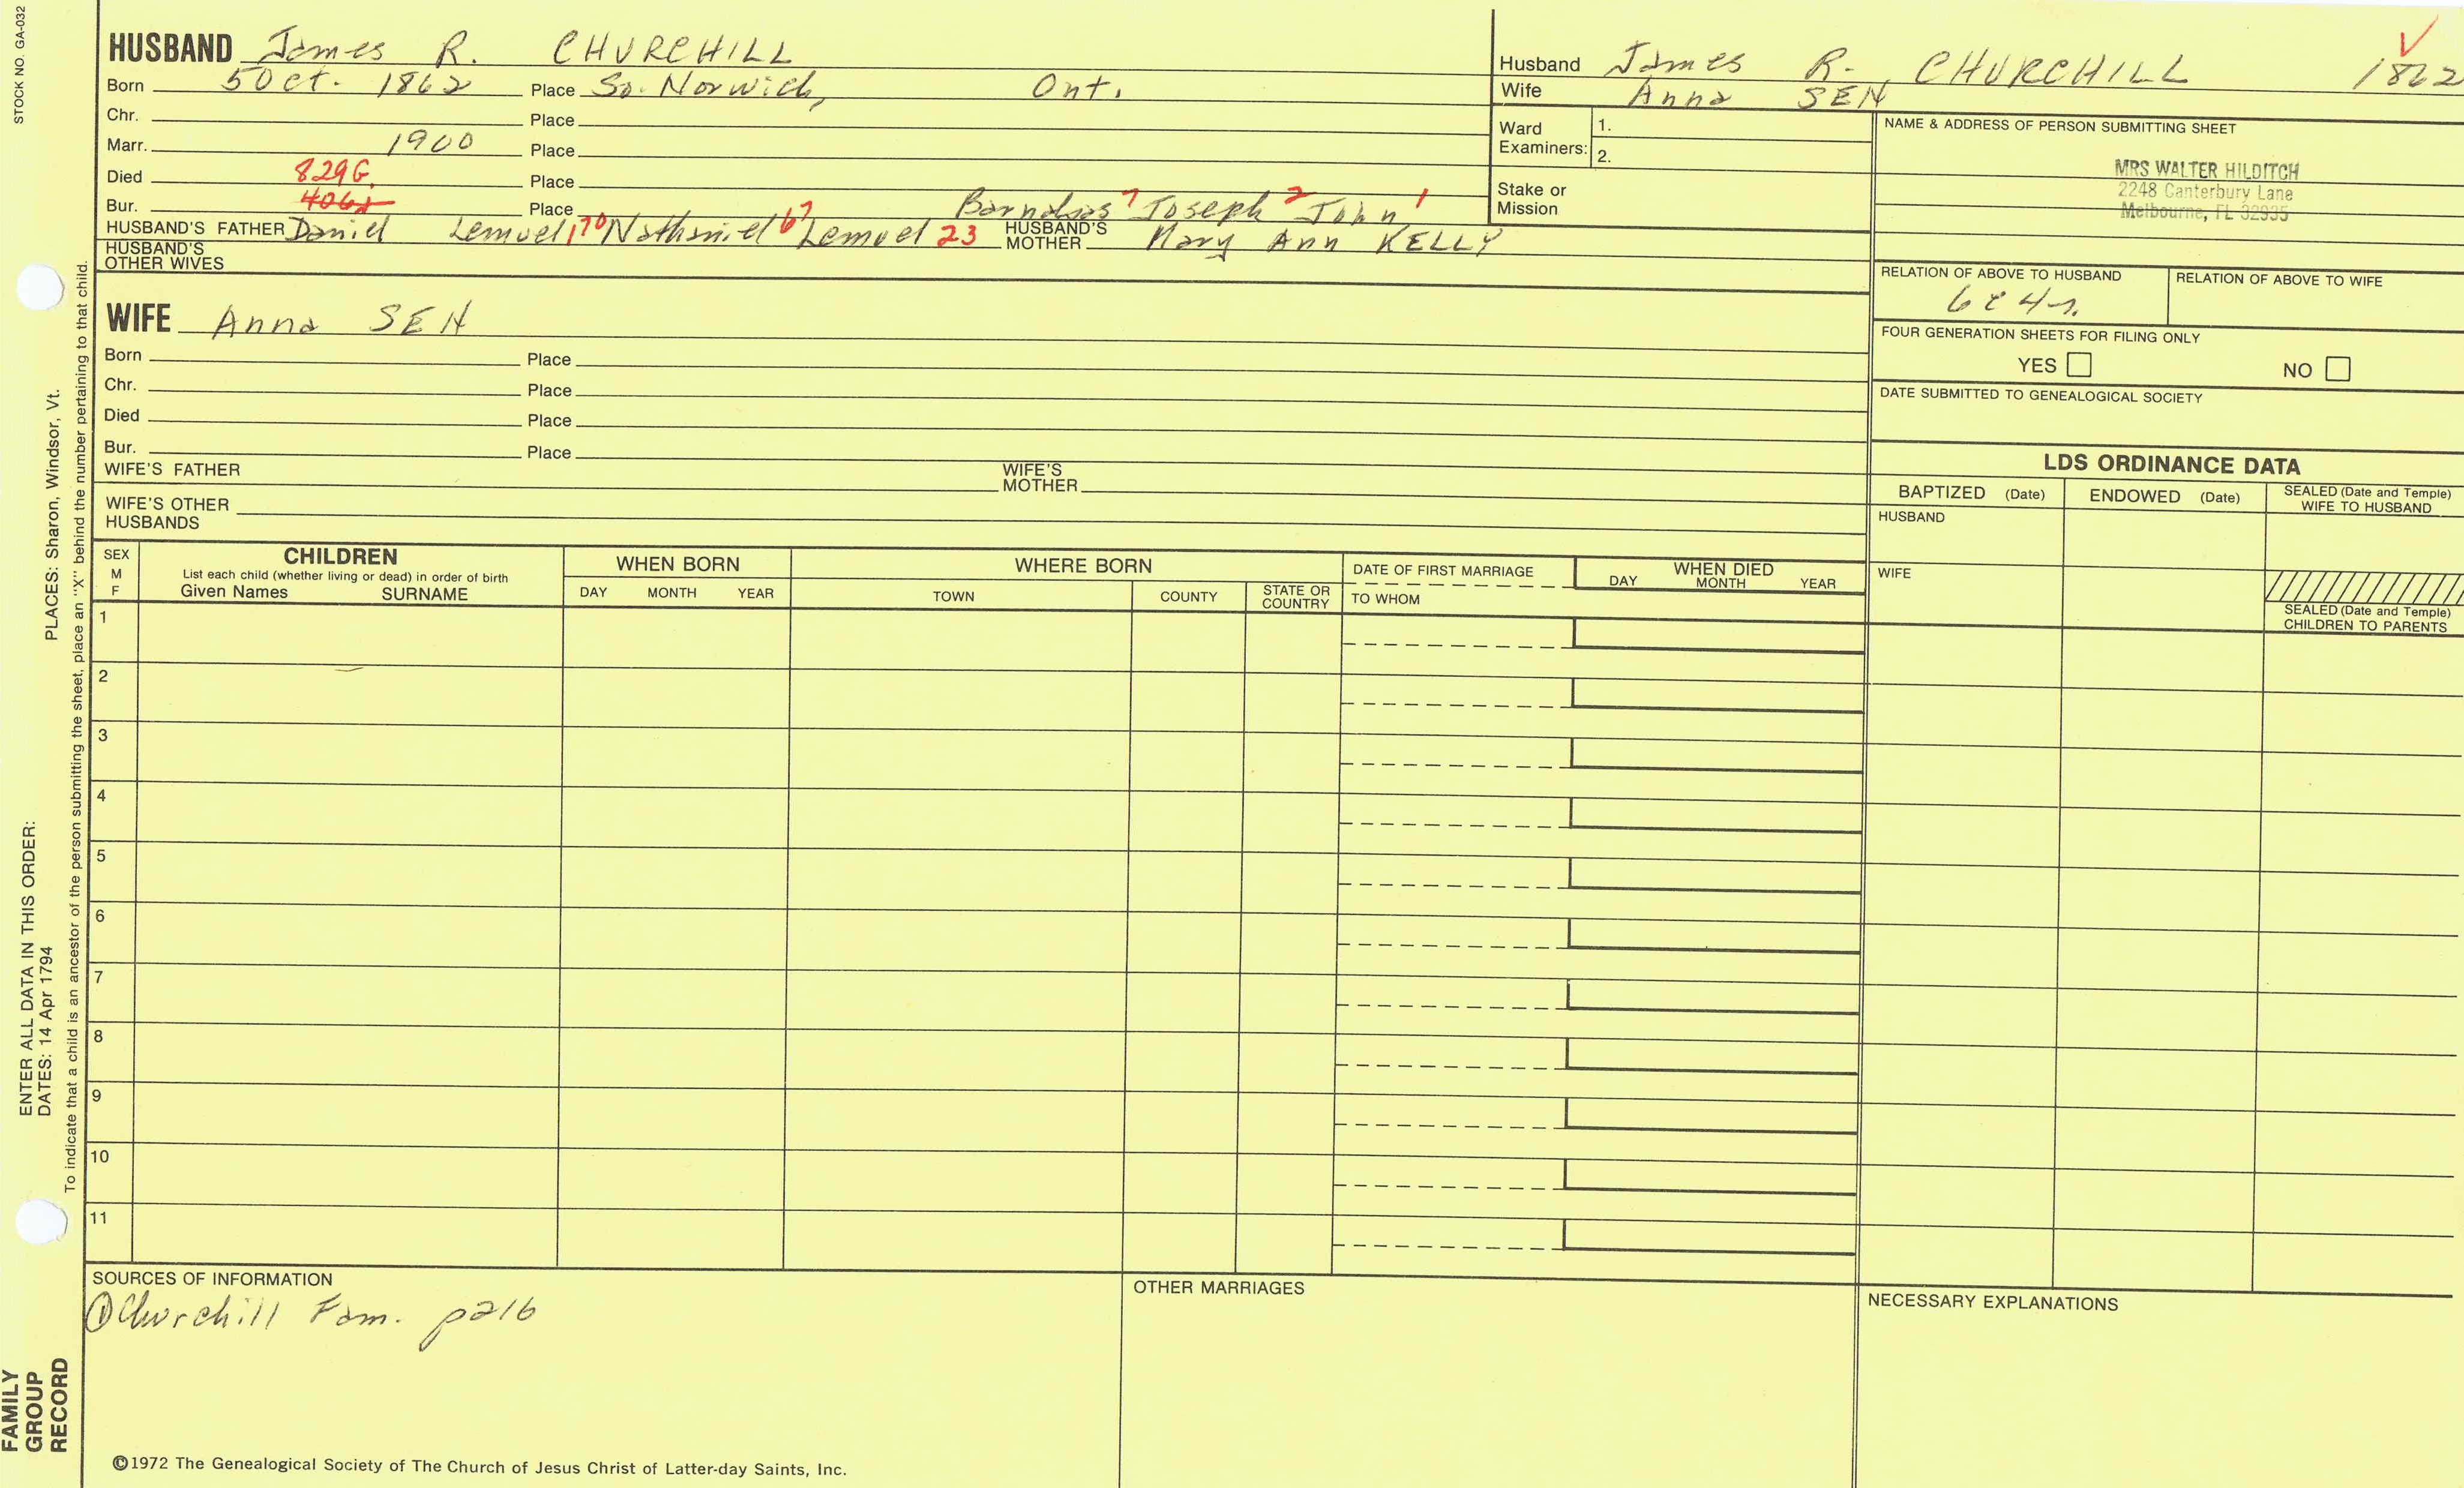 STOCK NO. GA-032
HUSBAND James R. CHURCHILL
Born 5 Oct. 1862 Place So. Norwich, Ont.
Chr. Place
Marr. 1900 Place
Died 829G. Place
Bur. Place Joseph 2 John 1
HUSBAND'S FATHER Daniel Lemuel, 170 Nathaniel 67 Lemuel 23 HUSBAND'S MOTHER Mary Ann KELLY
HUSBAND'S OTHER WIVES
Husband James R. CHURCHILL 1862
Wife Anna SEN
Ward Examiners: 1.
2.
Stake or Mission
NAME & ADDRESS OF PERSON SUBMITTING SHEET
MRS WALTER HILDITCH
2248 Canterbury Lane
Melbourne, FL 32935
RELATION OF ABOVE TO HUSBAND RELATION OF ABOVE TO WIFE
FOUR GENERATION SHEETS FOR FILING ONLY
YES NO
DATE SUBMITTED TO GENEALOGICAL SOCIETY
WIFE Anna SEN
Born Place
Chr. Place
Died Place
Bur. Place
WIFE'S FATHER WIFE'S MOTHER
WIFE'S OTHER HUSBANDS
LDS ORDINANCE DATA
BAPTIZED (Date) ENDOWED (Date) SEALED (Date and Temple) WIFE TO HUSBAND
HUSBAND
WIFE
SEALED (Date and Temple) CHILDREN TO PARENTS
SEX M F
CHILDREN
List each child (whether living or dead) in order of birth
Given Names SURNAME
WHEN BORN
DAY MONTH YEAR
WHERE BORN
TOWN COUNTY STATE OR COUNTRY
DATE OF FIRST MARRIAGE
TO WHOM
WHEN DIED
DAY MONTH YEAR
1
2
3
4
5
6
7
8
9
10
11
SOURCES OF INFORMATION
① Churchill Fam. p216
OTHER MARRIAGES
NECESSARY EXPLANATIONS
©1972 The Genealogical Society of The Church of Jesus Christ of Latter-day Saints, Inc.
FAMILY GROUP RECORD
ENTER ALL DATA IN THIS ORDER:
DATES: 14 Apr 1794 PLACES: Sharon, Windsor, Vt.
To indicate that a child is an ancestor of the person submitting the sheet, place an "X" behind the number pertaining to that child.